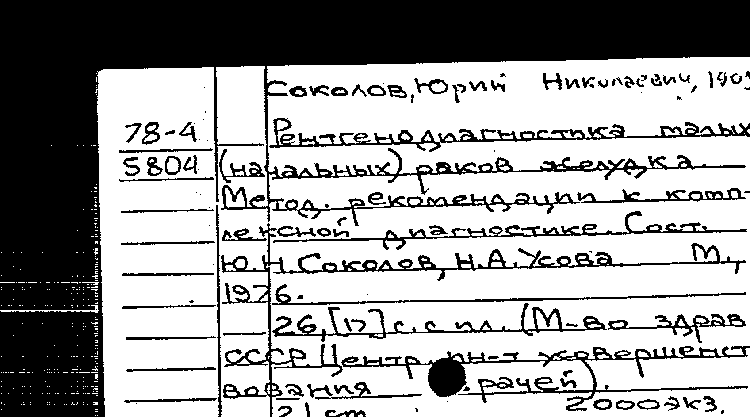 Соколов, Юрий Николаевич,
78-4 Рентгенодиагностика малых
5804 (начальных) раков желудка.
Метод. рекомендации к комп-
лексной диагностике. Сост.
Ю.Н. Соколов, Н.А. Усова М.,
1976.
26, [17] с. с ил. (М-во здрав
СССР. Центр. ин-т усовершенст
вования рачей).
21 cm 2000 экз.